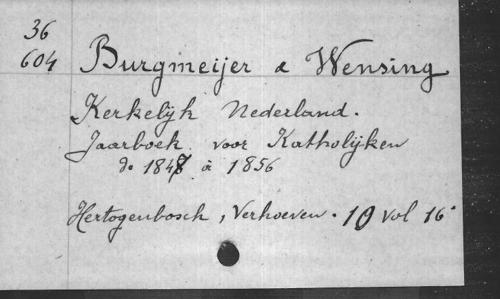 36
604 Burgmeijer & Wensing
Kerkelijk Nederland.
Jaarboek voor Katholijken
de 1847 à 1856
Hertogenbosch, Verhoeven. 10 vol 16°